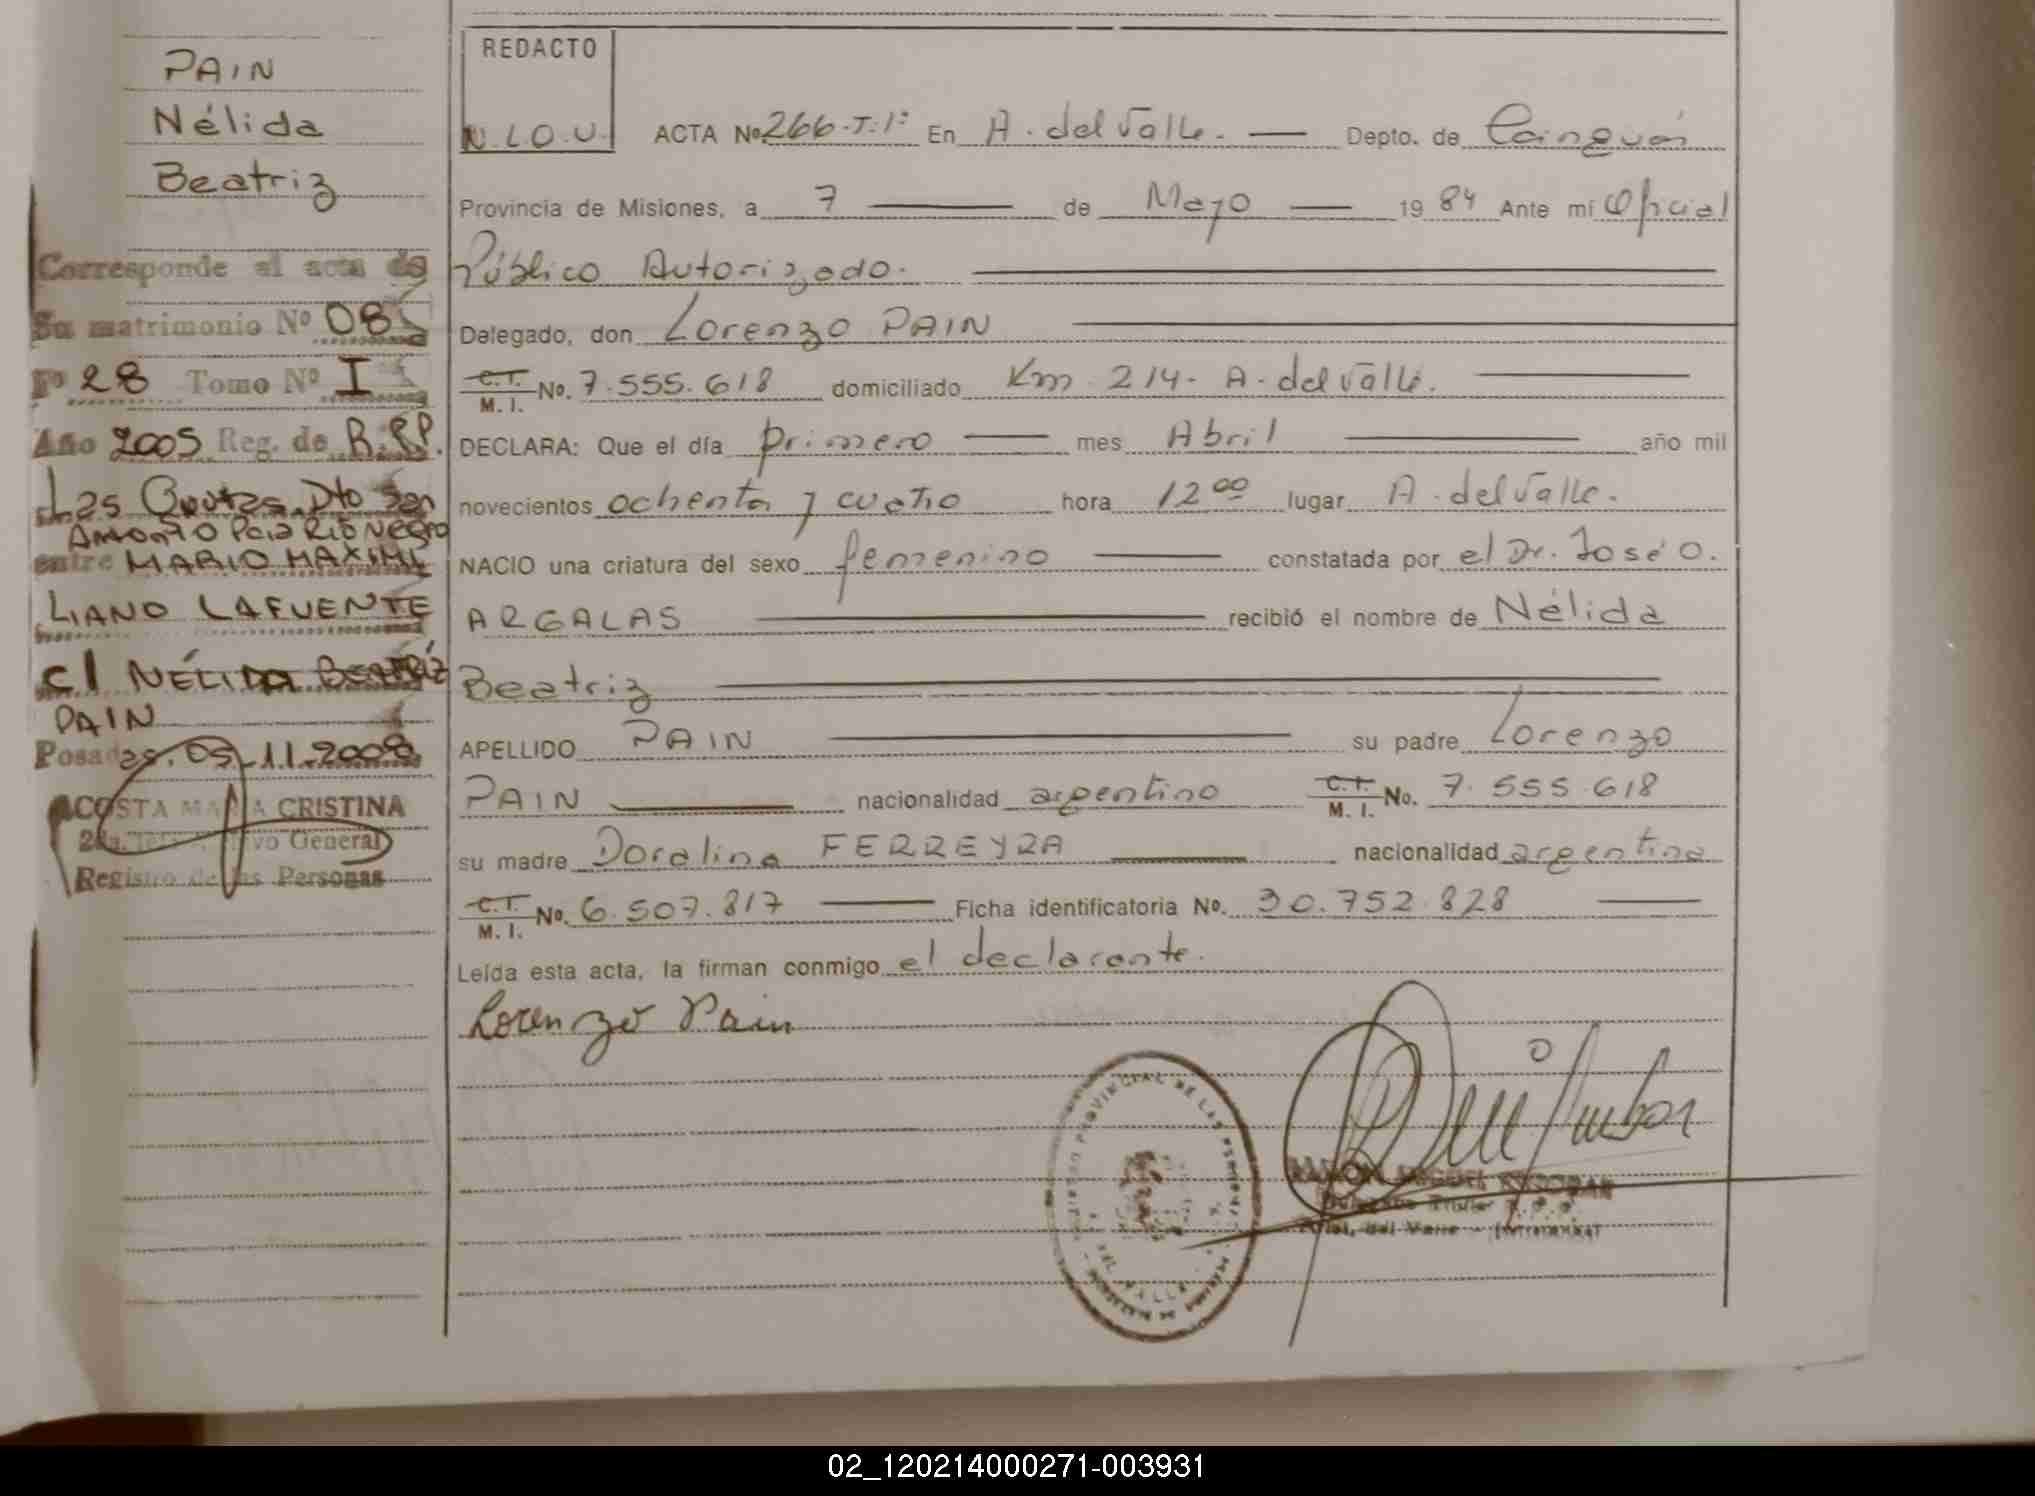 PAIN
Nélida
Beatriz
Corresponde al acta de
Su matrimonio Nº 08
Fº 28 Tomo Nº I
Año 2005 Reg. de R.P.
Las Grutas. Dto San
Antonio Pcia Rio Negro
entre MARIO MAXIMI
LIANO LAFUENTE
c/ NÉLIDA BEATRÍZ
PAIN
Posadas, 05.11.2008
ACOSTA MARIA CRISTINA
General
Registro de las Personas
REDACTO
N.L.O.U.
ACTA No. 266-T:1º En A. del Valle. Depto. de Cainguás
Provincia de Misiones, a 7 de Mayo 1984 Ante mí Oficial
Público Autorizado.
Delegado, don Lorenzo PAIN
C.I. M. I. No. 7.555.618 domiciliado Km 214- A. del Valle.
DECLARA: Que el día primero mes Abril año mil
novecientos ochenta y cuatro hora 12 00 lugar A. del Valle.
NACIO una criatura del sexo femenino constatada por el Dr. José O.
ARGALAS recibió el nombre de Nélida
Beatriz
APELLIDO PAIN su padre Lorenzo
PAIN nacionalidad argentino C.I. M. I. No. 7.555.618
su madre Doralina FERREYRA nacionalidad argentina
C.I. M. I. No. 6.507.817 Ficha identificatoria No. 30.752.828
Leída esta acta, la firman conmigo el declarante.
Lorenzo Pain
PROVINCIAL DE LAS PERSONAS
DEL VALLE
RAMON MIGUEL ESCOBAR
Titular
del Valle
02_120214000271-003931